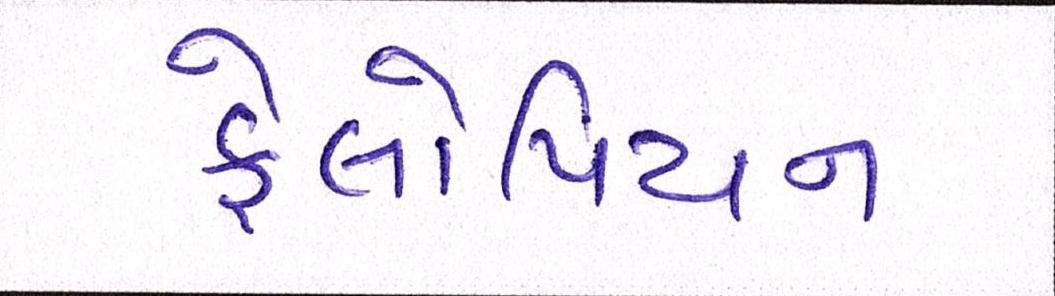 ફેલોપિયન